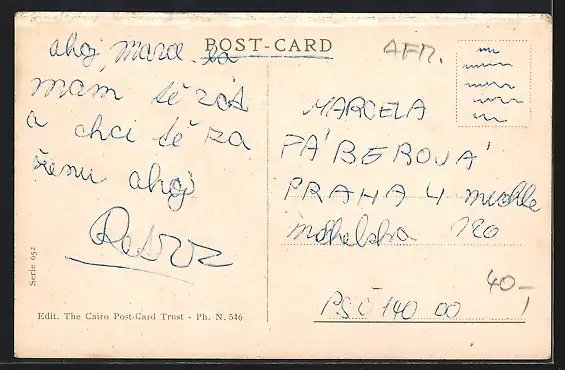 POST-CARD
AFR.
ahoj, Marcel
mám tě rád
a chci tě za
ženu ahoj
MARCELA
FÁBEROVÁ
PRAHA 4 michle
michelska 120
40-
PSČ 140 00
Serie 652
Edit. The Cairo Post-Card Trust - Ph. N. 546